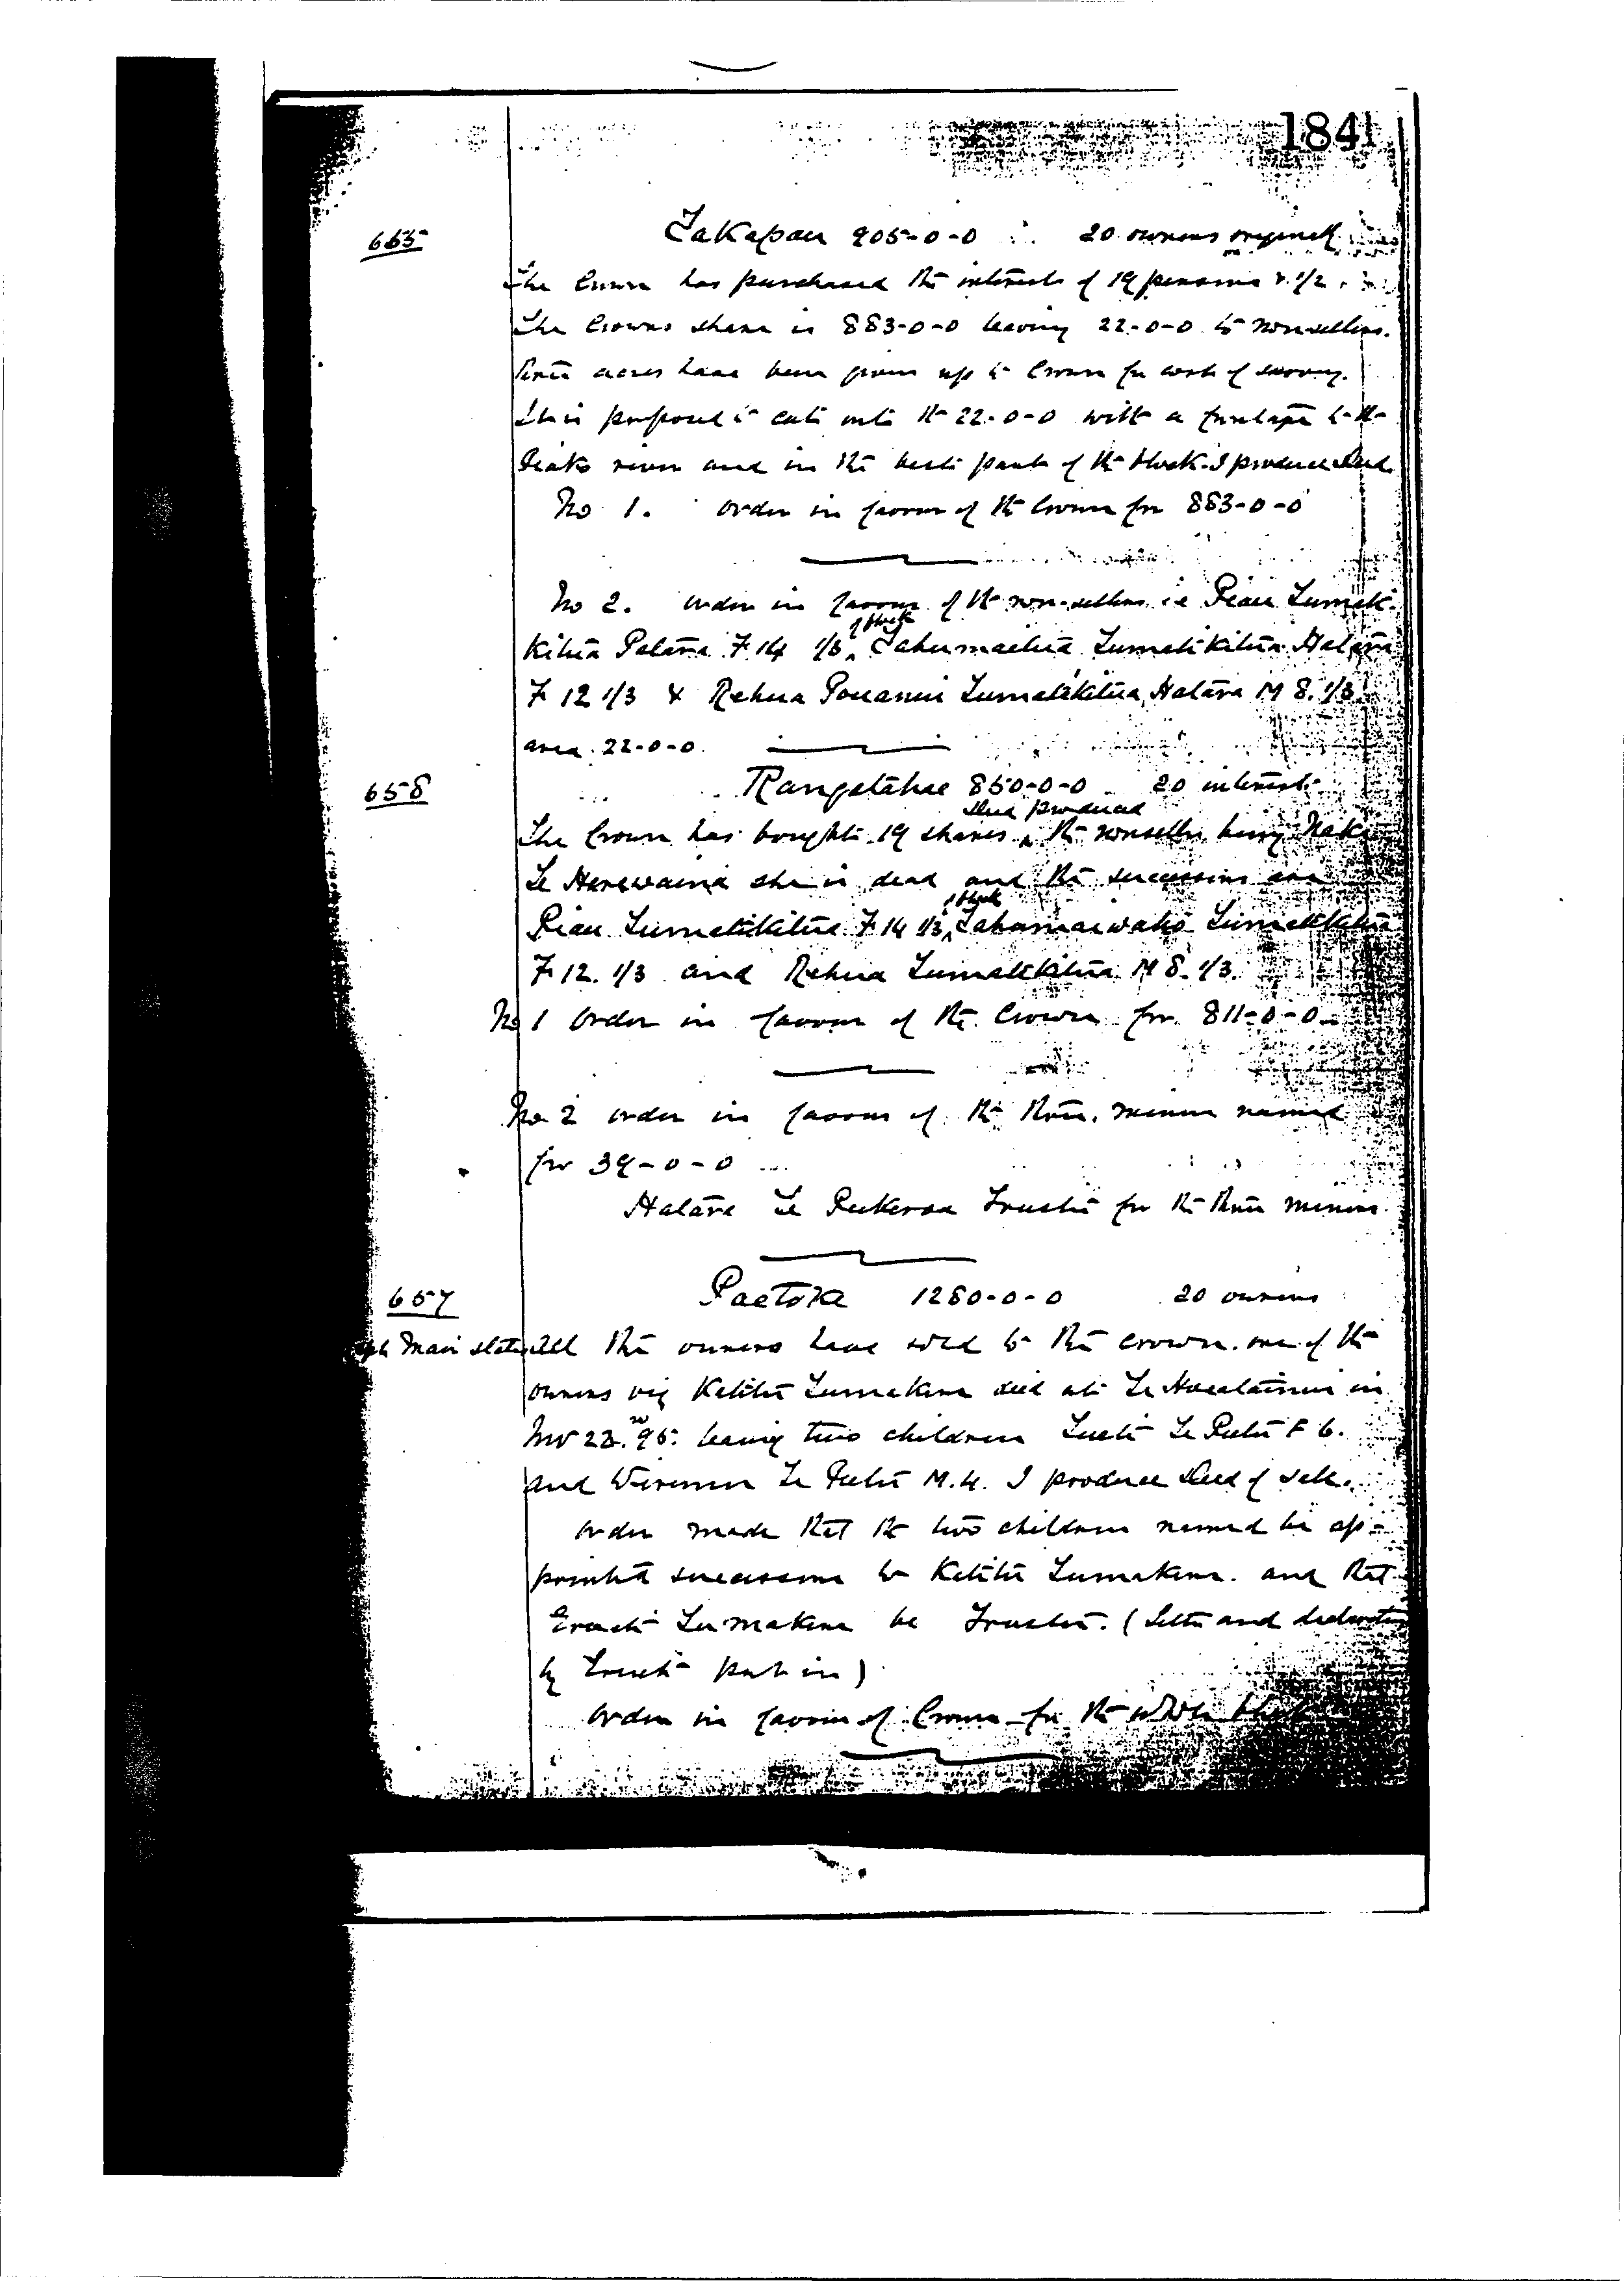 184
665 Takapau 905-0-0 20 owners original
The Crown has purchased the interests of 19 persons & 1/2
The Crowns share is 883-0-0 leaving 22-0-0 to nonsellers.
acres have been given up to Crown for cost of survey.
It is proposed to cut out the 22-0-0 with a frontage to the
Piako river and in the best part of the block. I produce deed
No 1. Order in favour of the Crown for 883-0-0
No 2. Order in favour of the non-sellers i.e Piau Tumate
Kitua Patara F 14 1/3 of block, Tumatikitua Hatara
F 12 1/3 & Rehua Tumatikitua Hatara M 8. 1/3
area 22-0-0.
658 Rangetahae 850-0-0 20 interests
The Crown has bought 19 shares deed produced the nonseller being
Te Herewaina she is dead and the successors are
Piau Tumatikitua F 14 1/3 of block, Tumatikitua
F 12. 1/3 and Rehua Tumatikitua M 8. 1/3.
No 1 Order in favour of the Crown for 811-0-0
No 2 order in favour of the three minors named
for 39-0-0
Hatara Te Trustee for the three minors.
657 Paetoka 1280-0-0 20 owners
Main states All the owners have sold to the crown. one of the
owners viz Ketihi Tumakina died at Te in
Nov 22. 95. leaving two children Te F 6.
and Wiremu Te M. 4. I produce deed of sale.
Order made that the two children named be ap-
pointed successors to Ketihi Tumakina. and that
Tumakina be Trustee. (Letter and declaration
by Trustee put in)
Order in favour of Crown for the whole block